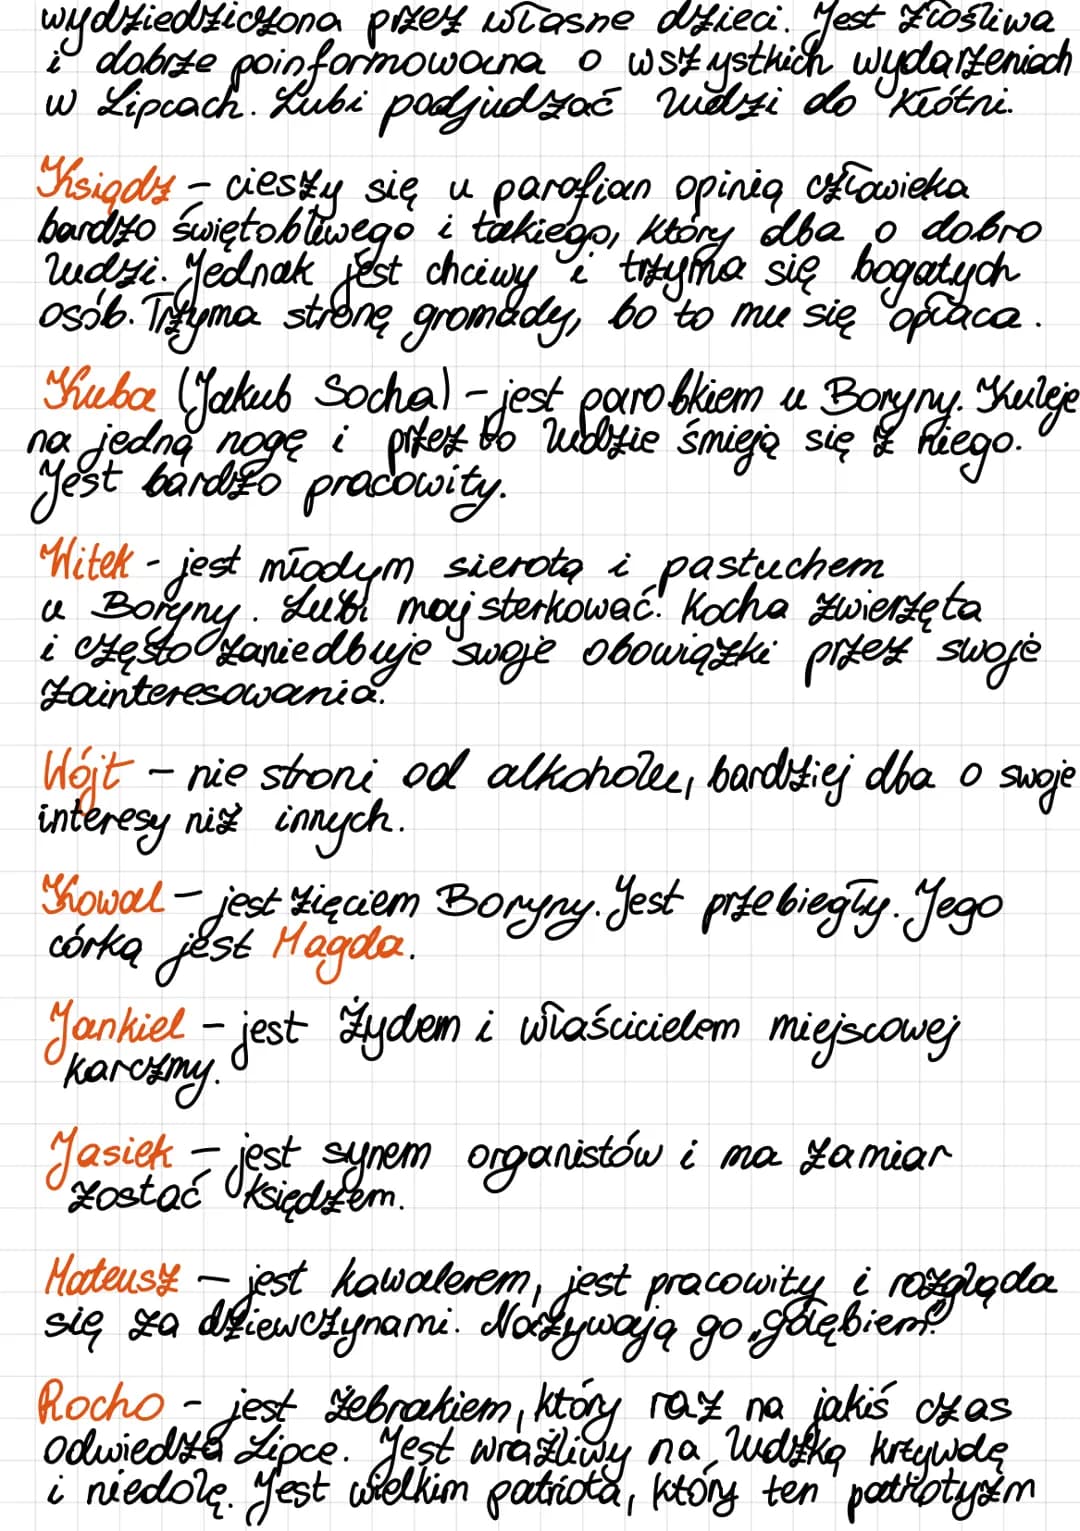 wydziedziczona przez własne dzieci. Jest złośliwa
i dobrze poinformowana o wszystkich wydarzeniach
w Lipcach. Lubi podjudzać ludzi do kłótni.
Ksiądz - cieszy się u parafian opinią człowieka
bardzo świętobliwego i takiego, który dba o dobro
ludzi. Jednak jest chciwy i trzyma się bogatych
osób. Trzyma stronę gromady, bo to mu się opłaca.
Kuba (Jakub Socha) - jest parobkiem u Boryny. Kuleje
na jedną nogę i przez to ludzie śmieją się z niego.
Jest bardzo pracowity.
Witek - jest młodym sierotą i pastuchem
u Boryny. Lubi majsterkować. Kocha zwierzęta
i często zaniedbuje swoje obowiązki przez swoje
zainteresowania.
Wójt - nie stroni od alkoholu, bardziej dba o swoje
interesy niż innych.
Kowal - jest zięciem Boryny. Jest przebiegły. Jego
córką jest Magda.
Jankiel - jest Żydem i właścicielem miejscowej
karczmy.
Jasiek - jest synem organistów i ma zamiar
zostać księdzem.
Mateusz - jest kawalerem, jest pracowity i rozgląda
się za dziewczynami. Nazywają go „gołębiem”
Rocho - jest żebrakiem, który raz na jakiś czas
odwiedza Lipce. Jest wrażliwy na ludzką krzywdę
i niedolę. Jest wielkim patriotą, który ten patriotyzm